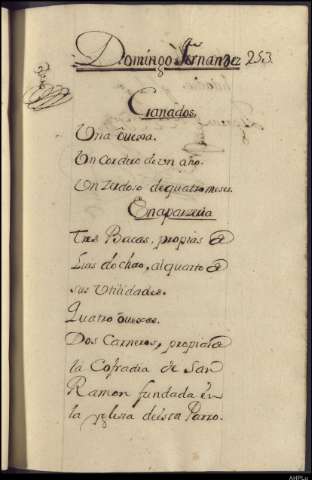 Domingo Fernandez 253.
Ganados.
Una obexa.
Un Cordero de un año.
Un Zerdo de quatro meses.
En aparzeria
Tres Bacas, propias de
Luis do chao, al quarto de
sus Utilidades.
Quatro obexas.
Dos Carneros, propias de
la Cofradia de San
Ramon fundada en
la yglesia de esta Parro.
AHPLu